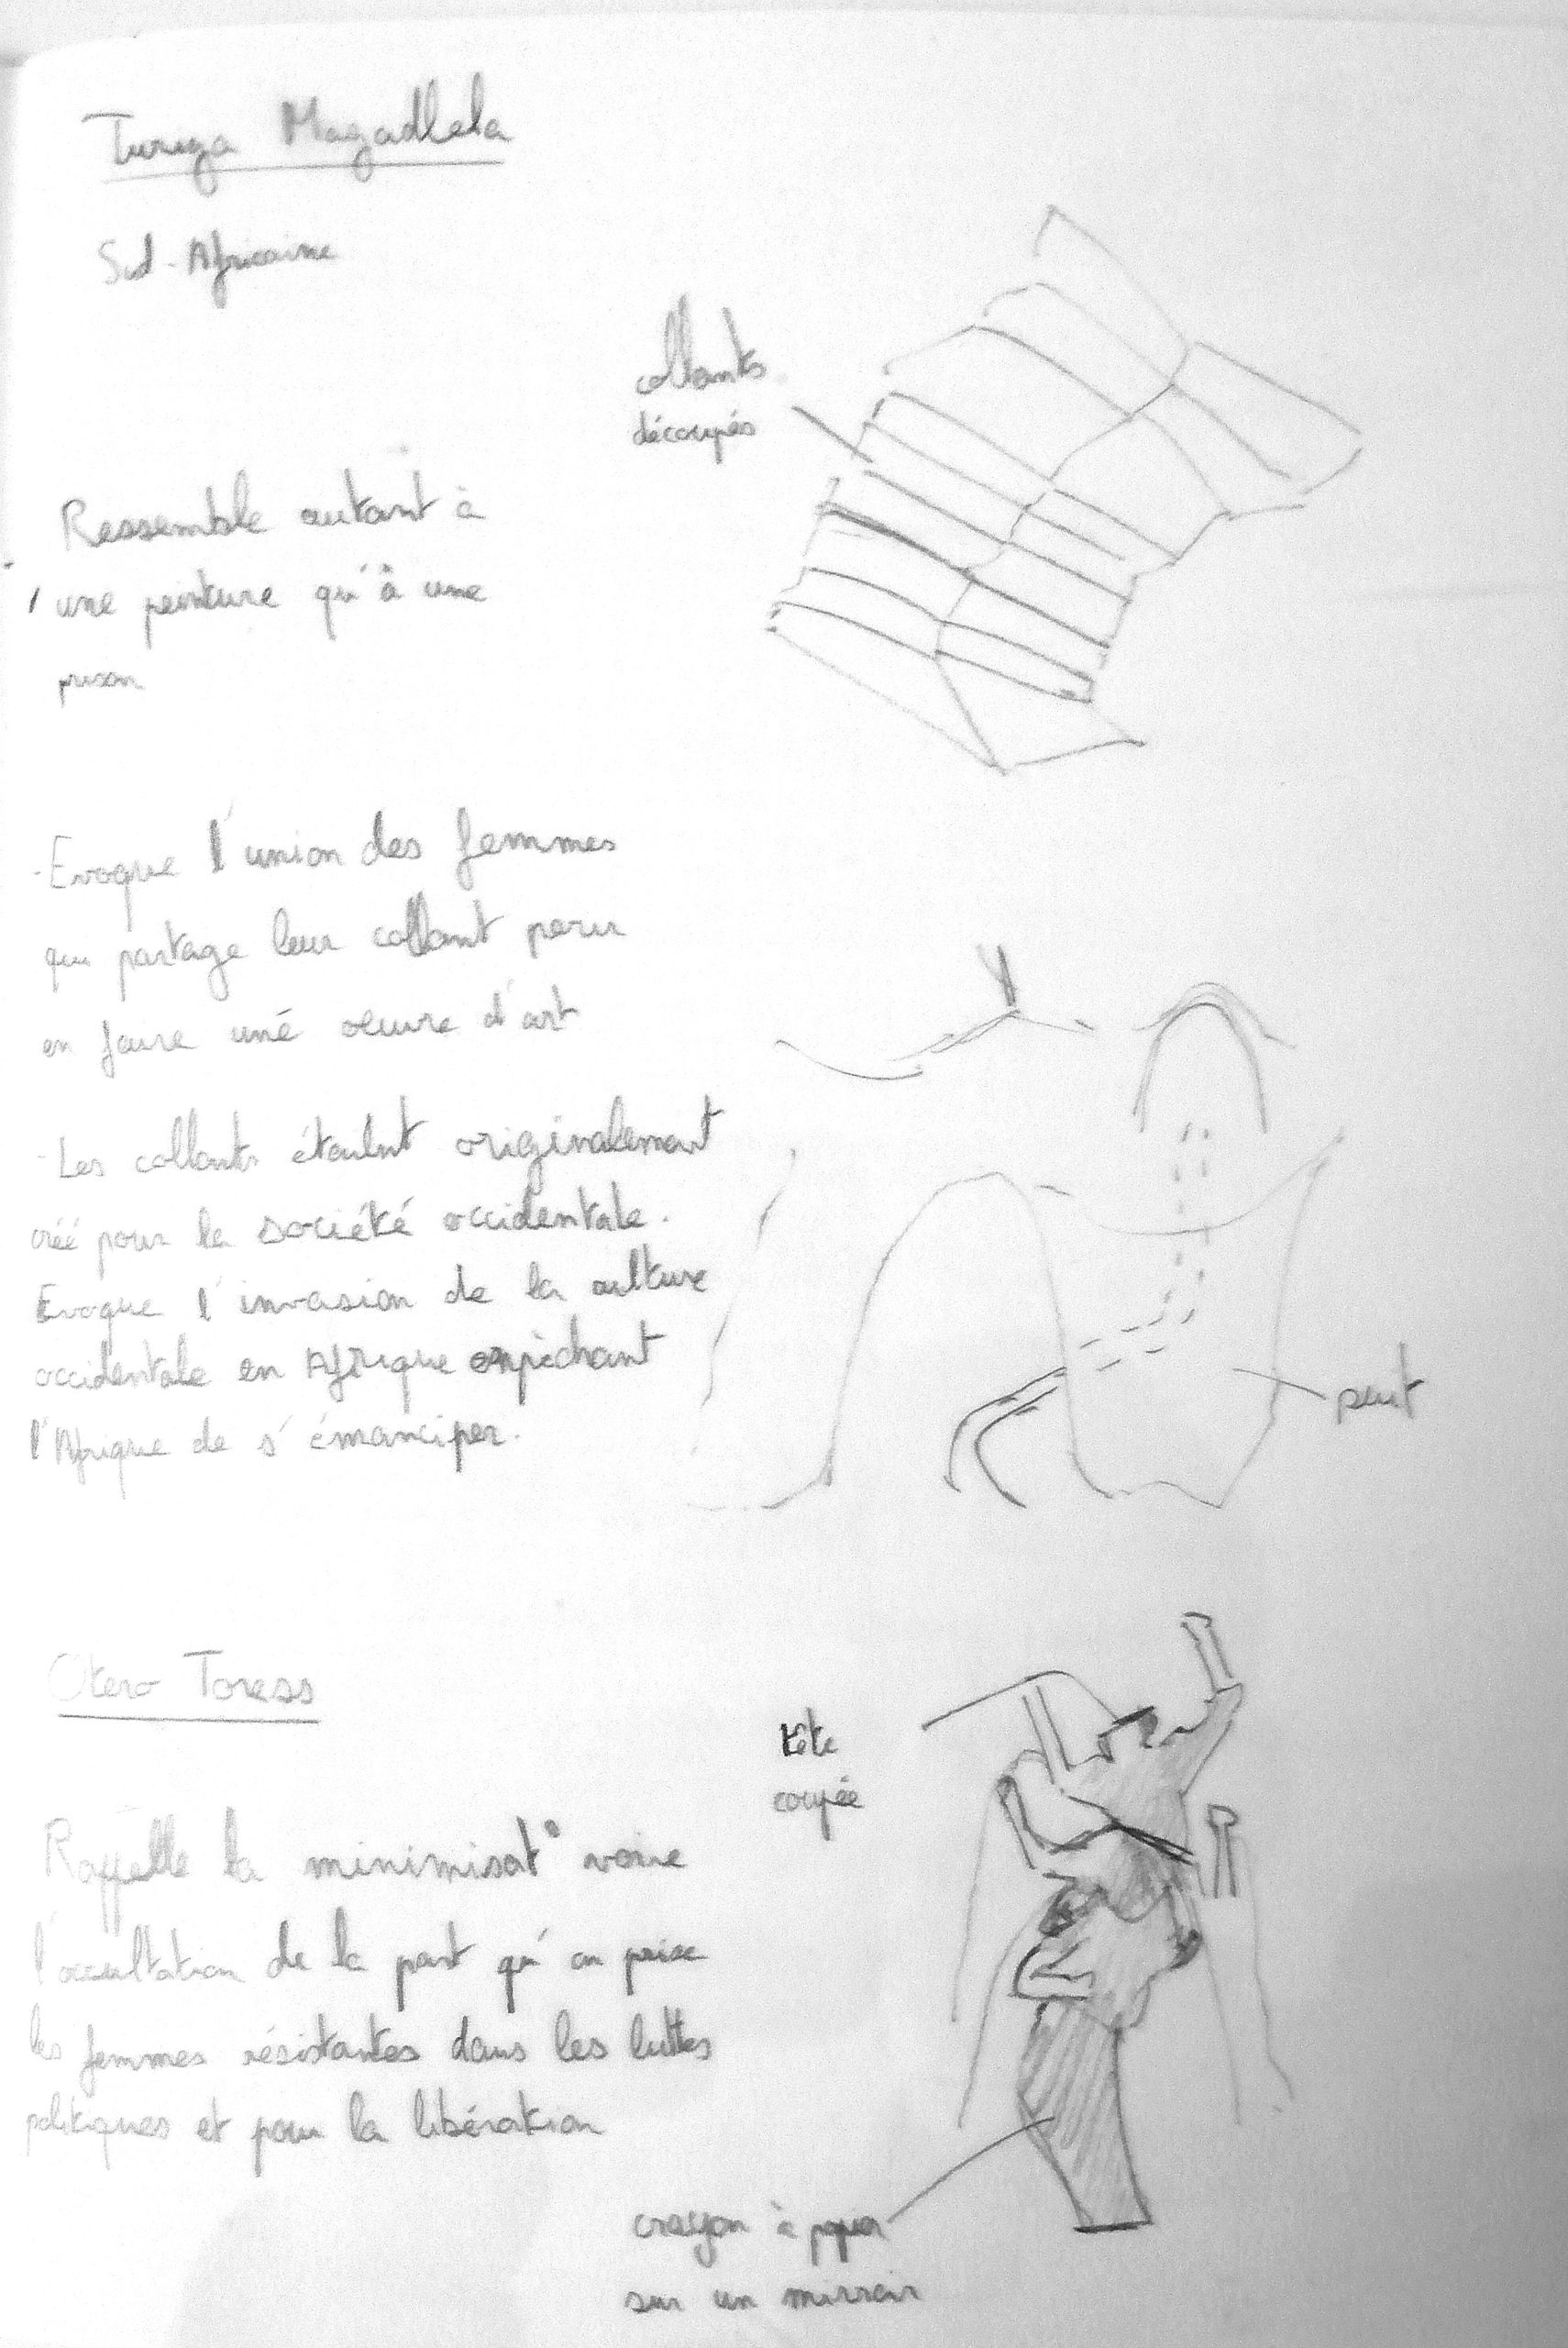 Turiya Magadlela
Sud-Africaine
collants
découpés
Ressemble autant à
une peinture qu'à une
prison
- Evoque l'union des femmes
qui partage leur collant pour
en faire une oeuvre d'art
- Les collants étaient originalement
créé pour la société occidentale.
Evoque l'invasion de la culture
occidentale en Afrique empêchant
l'Afrique de s'émanciper.
Otero Toress
tête
coupée
Rappelle la minimisat° voire
l'occultation de la part qu'on prise
les femmes résistantes dans les luttes
politiques et pour la libération
crayon à papier
sur un mirroir